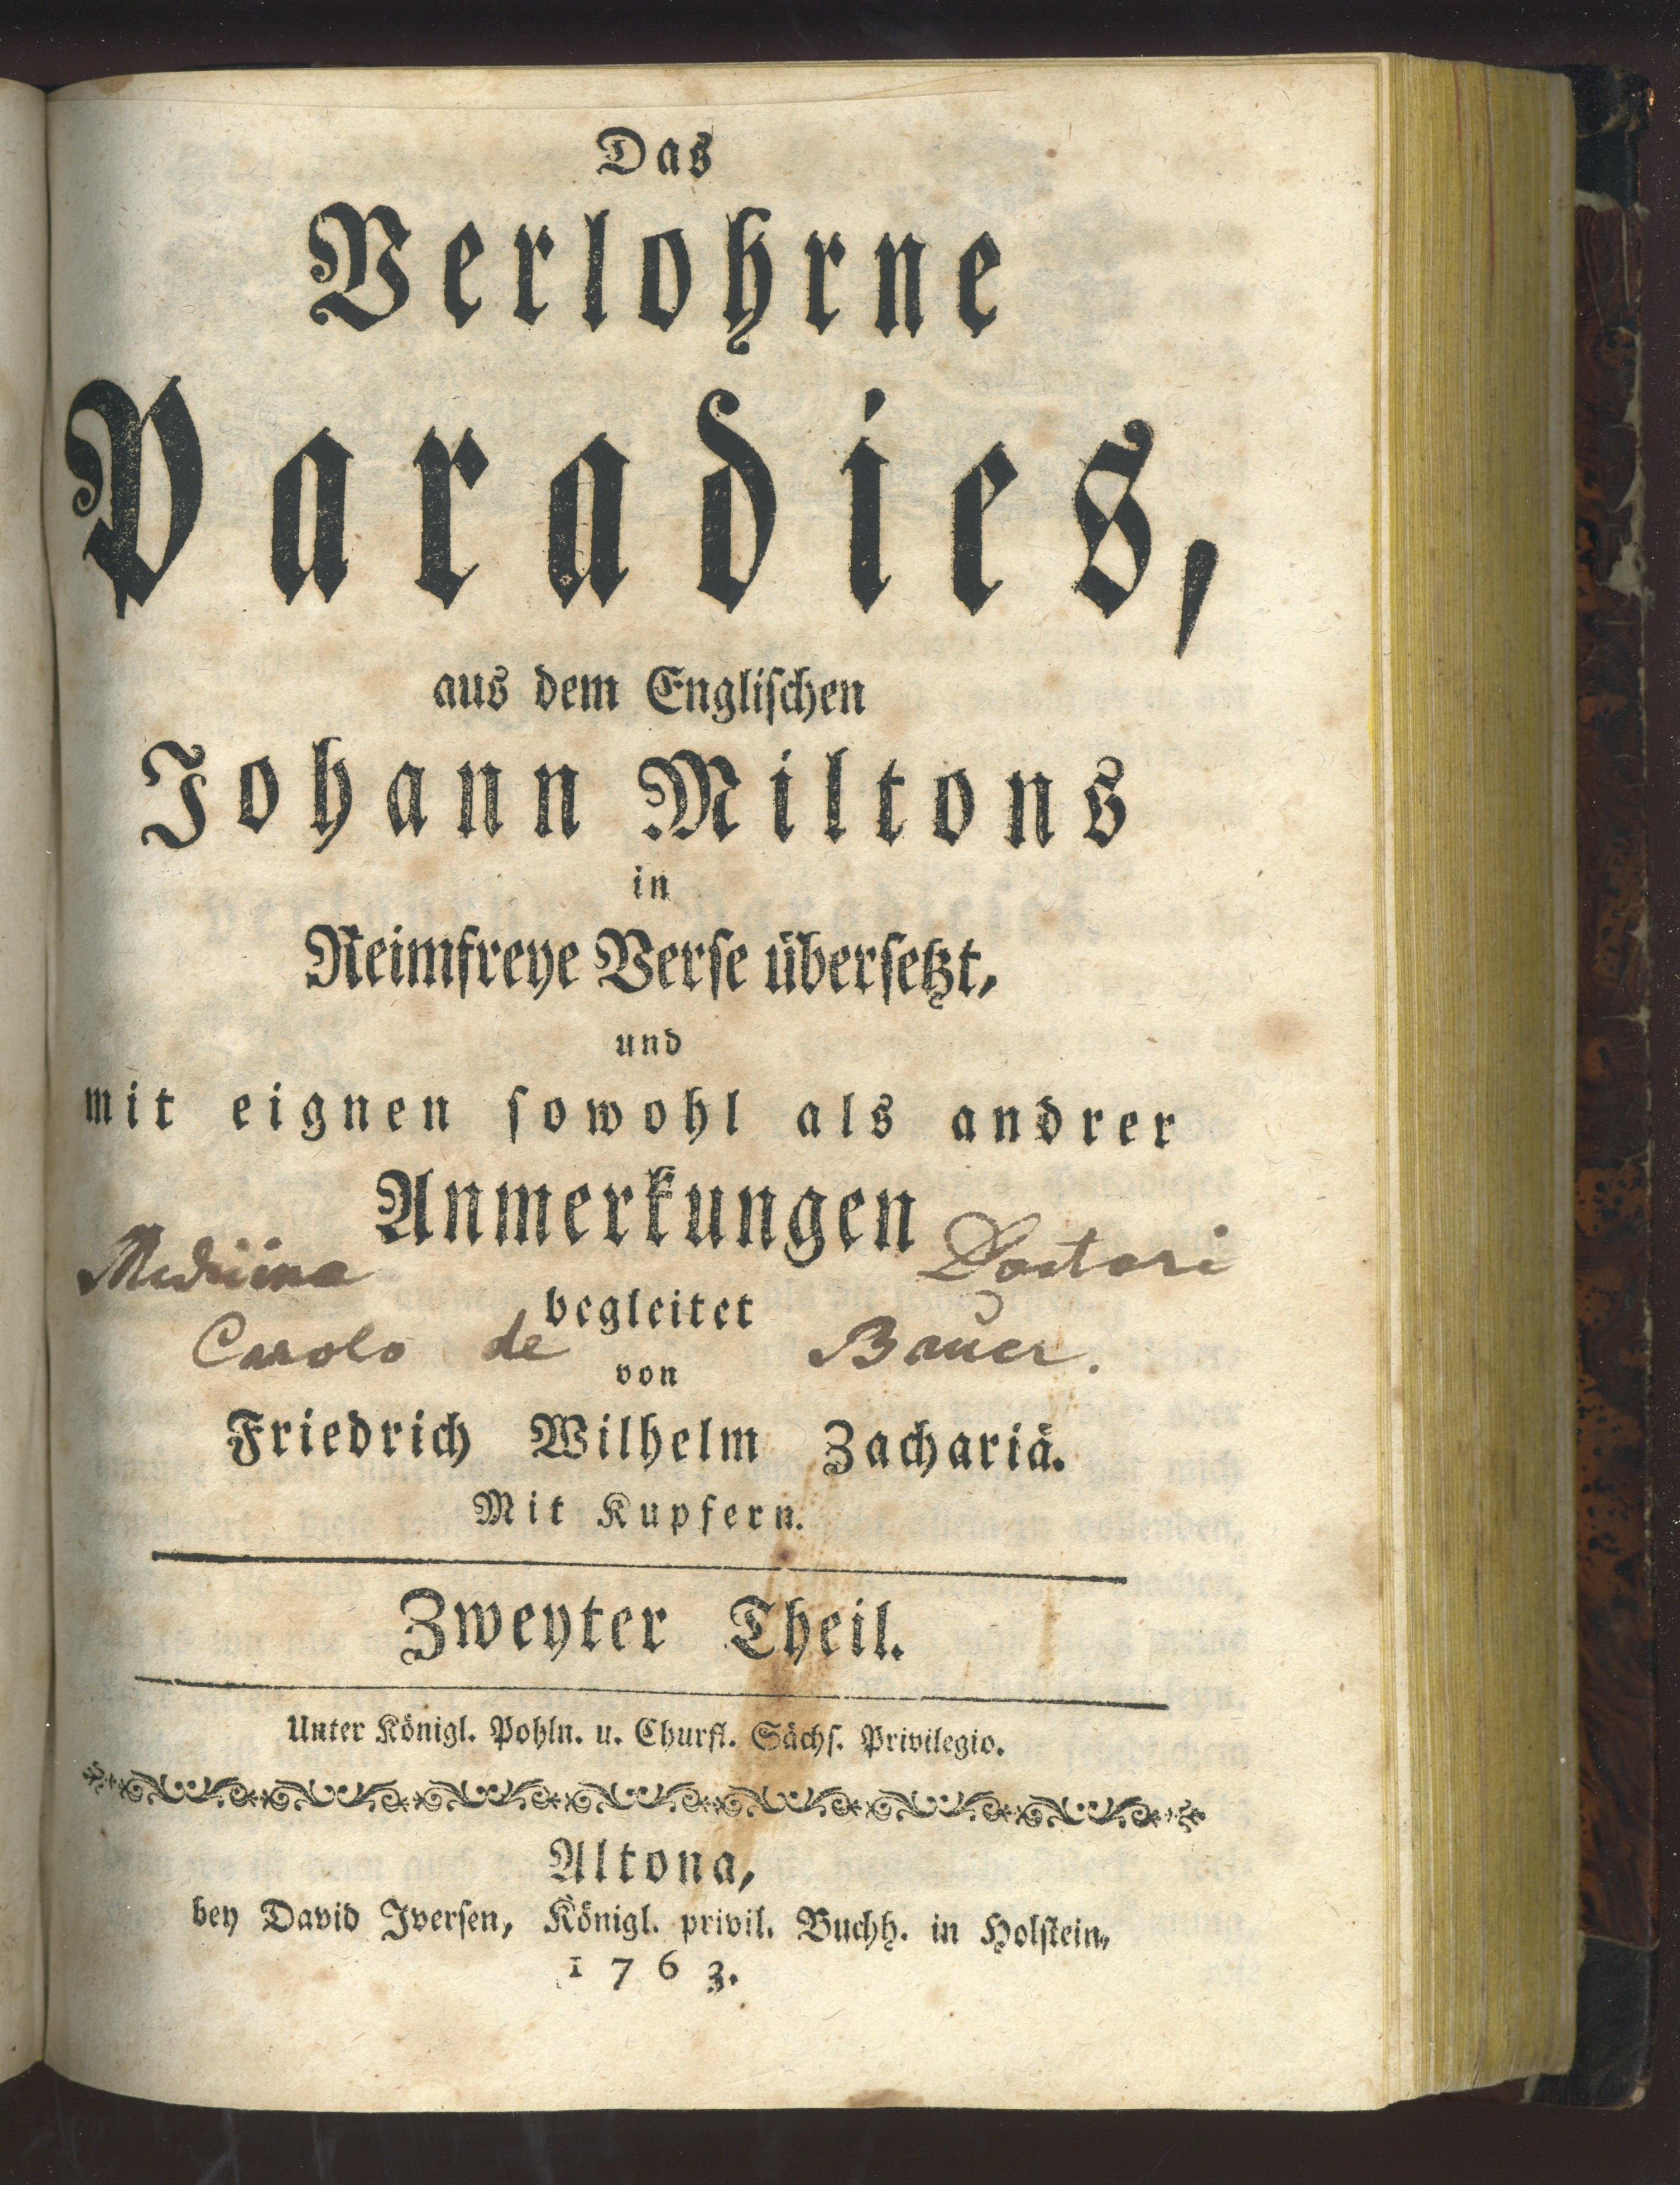 Das
Verlohrne
Paradies,
aus dem Englischen
Johann Miltons
in
Reimfreye Verse übersetzt,
und
mit eignen sowohl als andrer
Anmerkungen
Medicina Doctori
begleitet
Carolo de Bauer.
von
Friedrich Wilhelm Zachariä.
Mit Kupfern.
Zweyter Theil.
Unter Königl. Pohln. u. Churfl. Sächs. Privilegio.
Altona,
bey David Iversen, Königl. privil. Buchh. in Holstein,
1763.